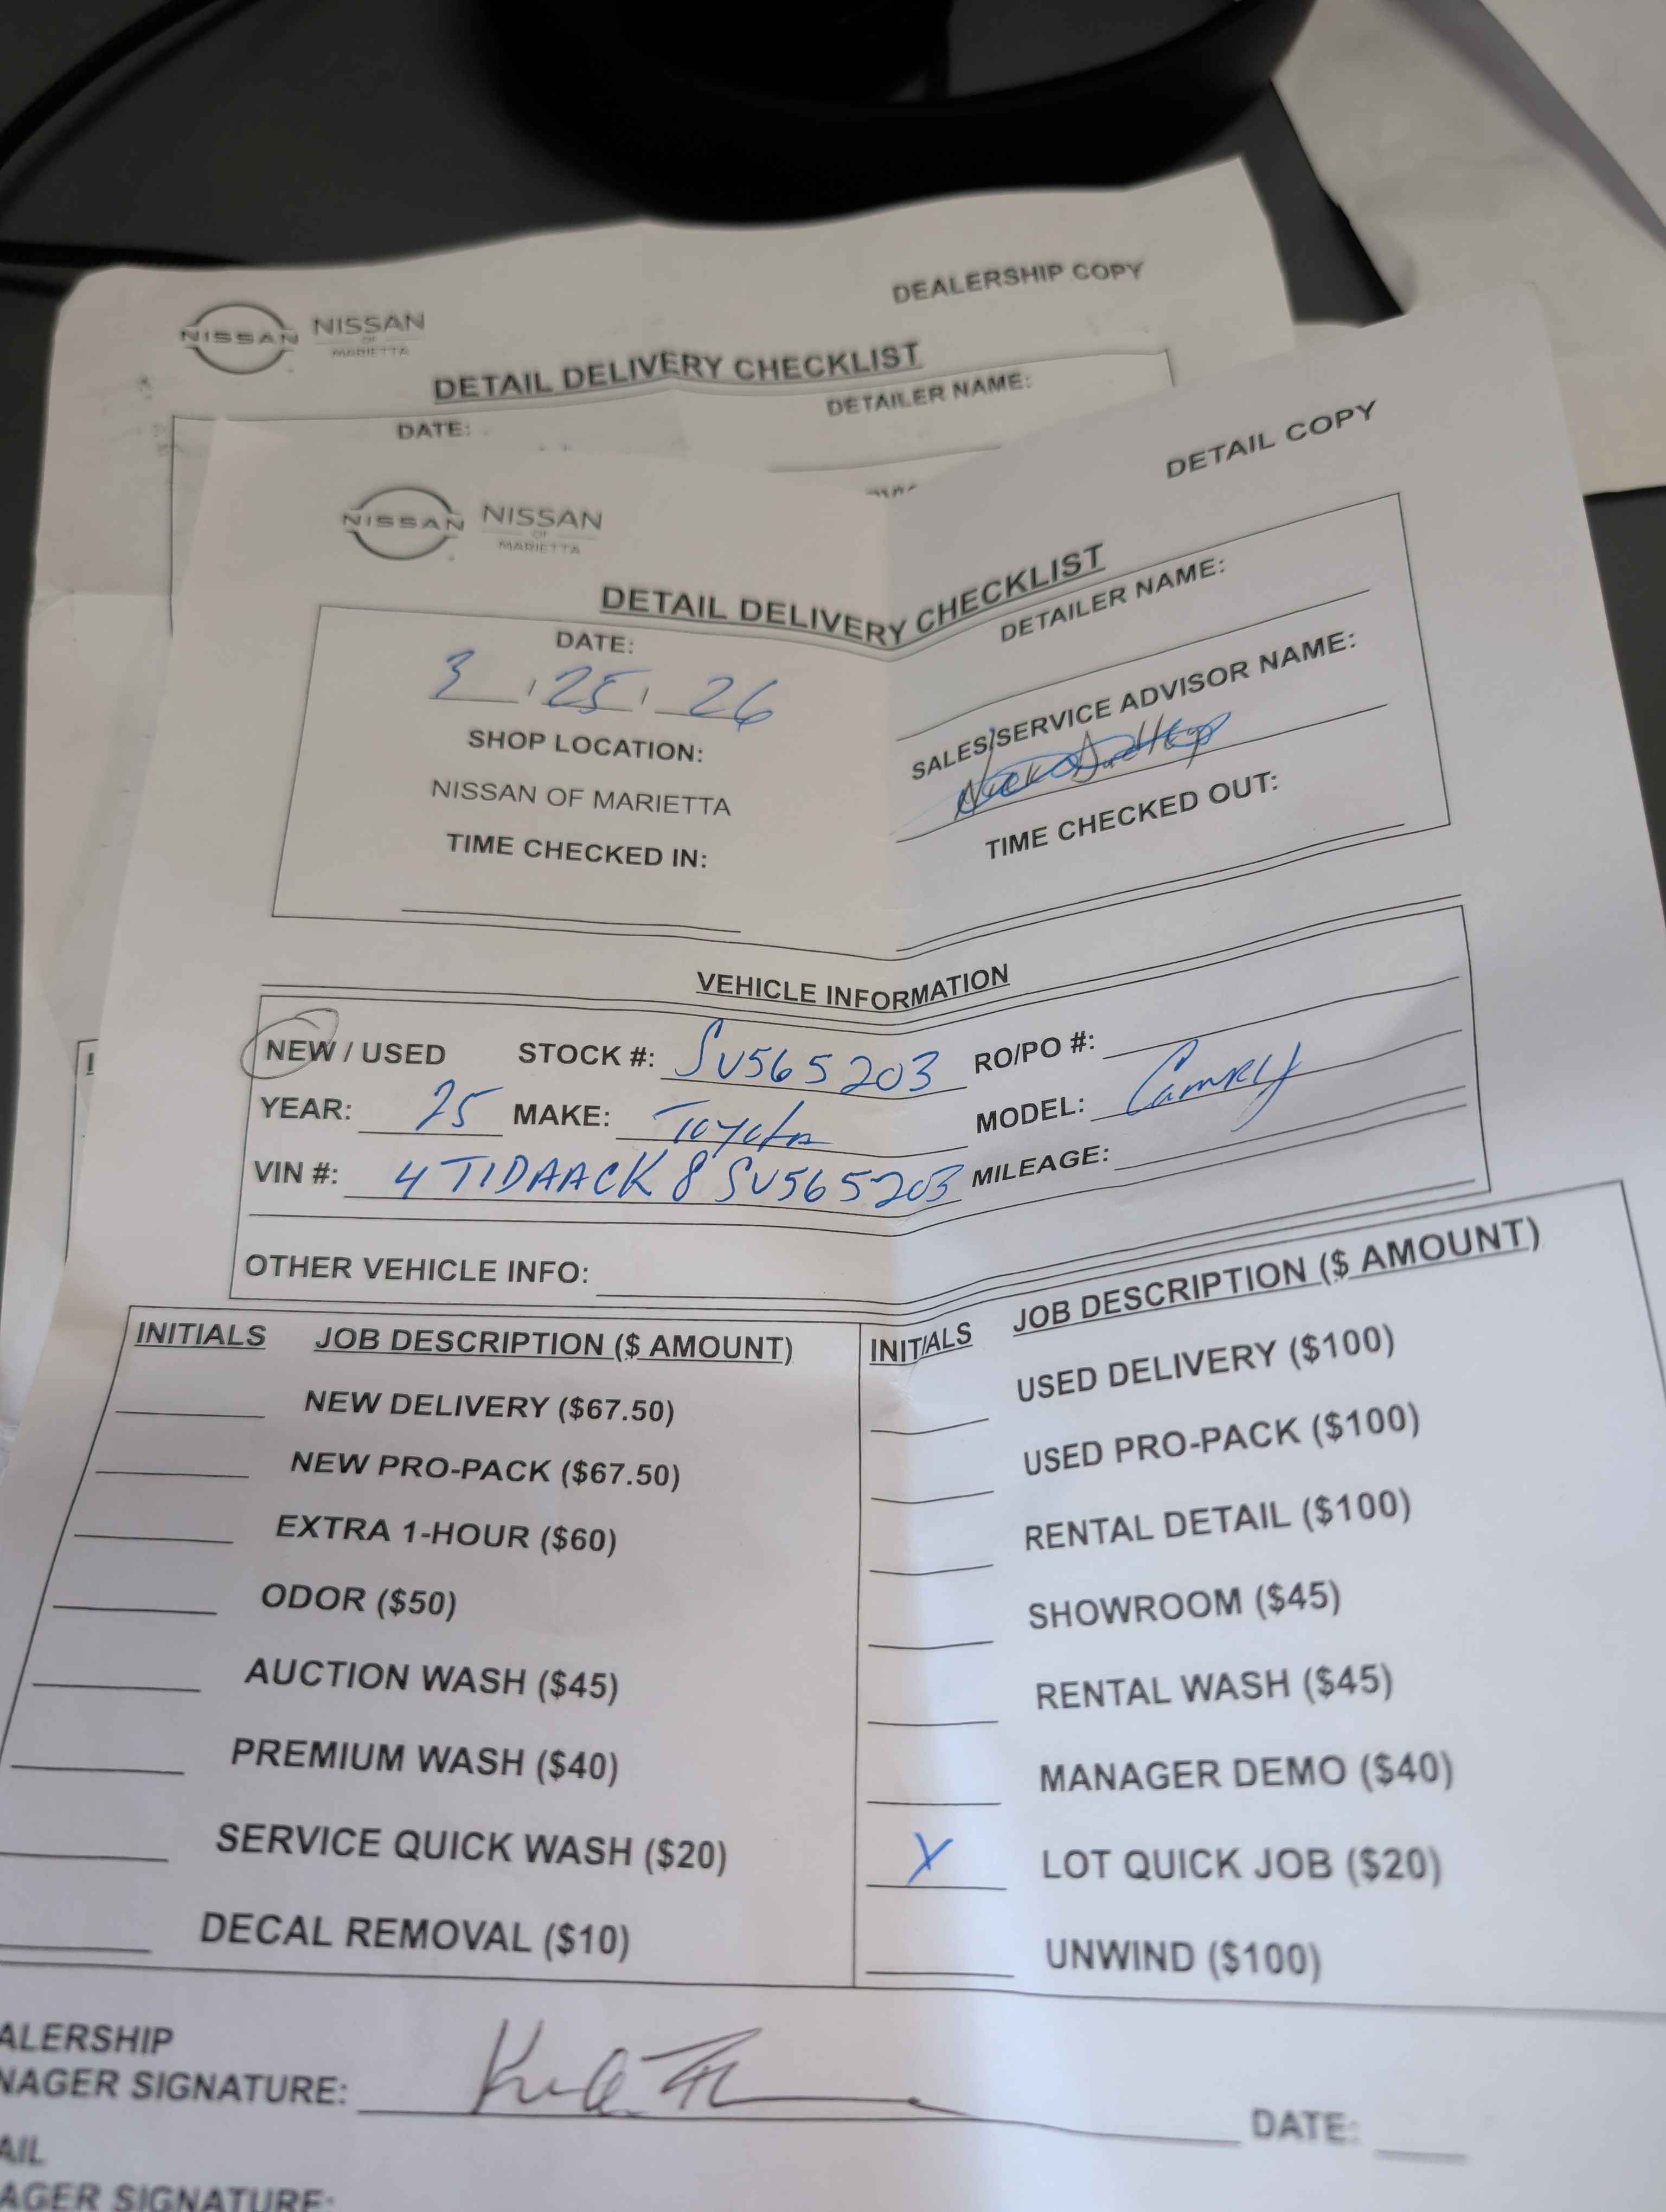 DEALERSHIP COPY
NISSAN NISSAN
OF
MARIETTA
DETAIL DELIVERY CHECKLIST
DATE: DETAILER NAME:
DETAIL COPY
NISSAN NISSAN
OF
MARIETTA
DETAIL DELIVERY CHECKLIST
DATE: DETAILER NAME:
3 / 25 / 26
SHOP LOCATION: SALES/SERVICE ADVISOR NAME:
NISSAN OF MARIETTA
TIME CHECKED IN: TIME CHECKED OUT:
VEHICLE INFORMATION
NEW / USED STOCK #: SV565203 RO/PO #:
YEAR: 25 MAKE: Toyota MODEL: Camry
VIN #: 4T1DAACK8SV565203 MILEAGE:
OTHER VEHICLE INFO:
INITIALS JOB DESCRIPTION ($ AMOUNT) INITIALS JOB DESCRIPTION ($ AMOUNT)
NEW DELIVERY ($67.50) USED DELIVERY ($100)
NEW PRO-PACK ($67.50) USED PRO-PACK ($100)
EXTRA 1-HOUR ($60) RENTAL DETAIL ($100)
ODOR ($50) SHOWROOM ($45)
AUCTION WASH ($45) RENTAL WASH ($45)
PREMIUM WASH ($40) MANAGER DEMO ($40)
SERVICE QUICK WASH ($20) X LOT QUICK JOB ($20)
DECAL REMOVAL ($10) UNWIND ($100)
ALERSHIP
NAGER SIGNATURE: DATE:
AIL
AGER SIGNATURE: